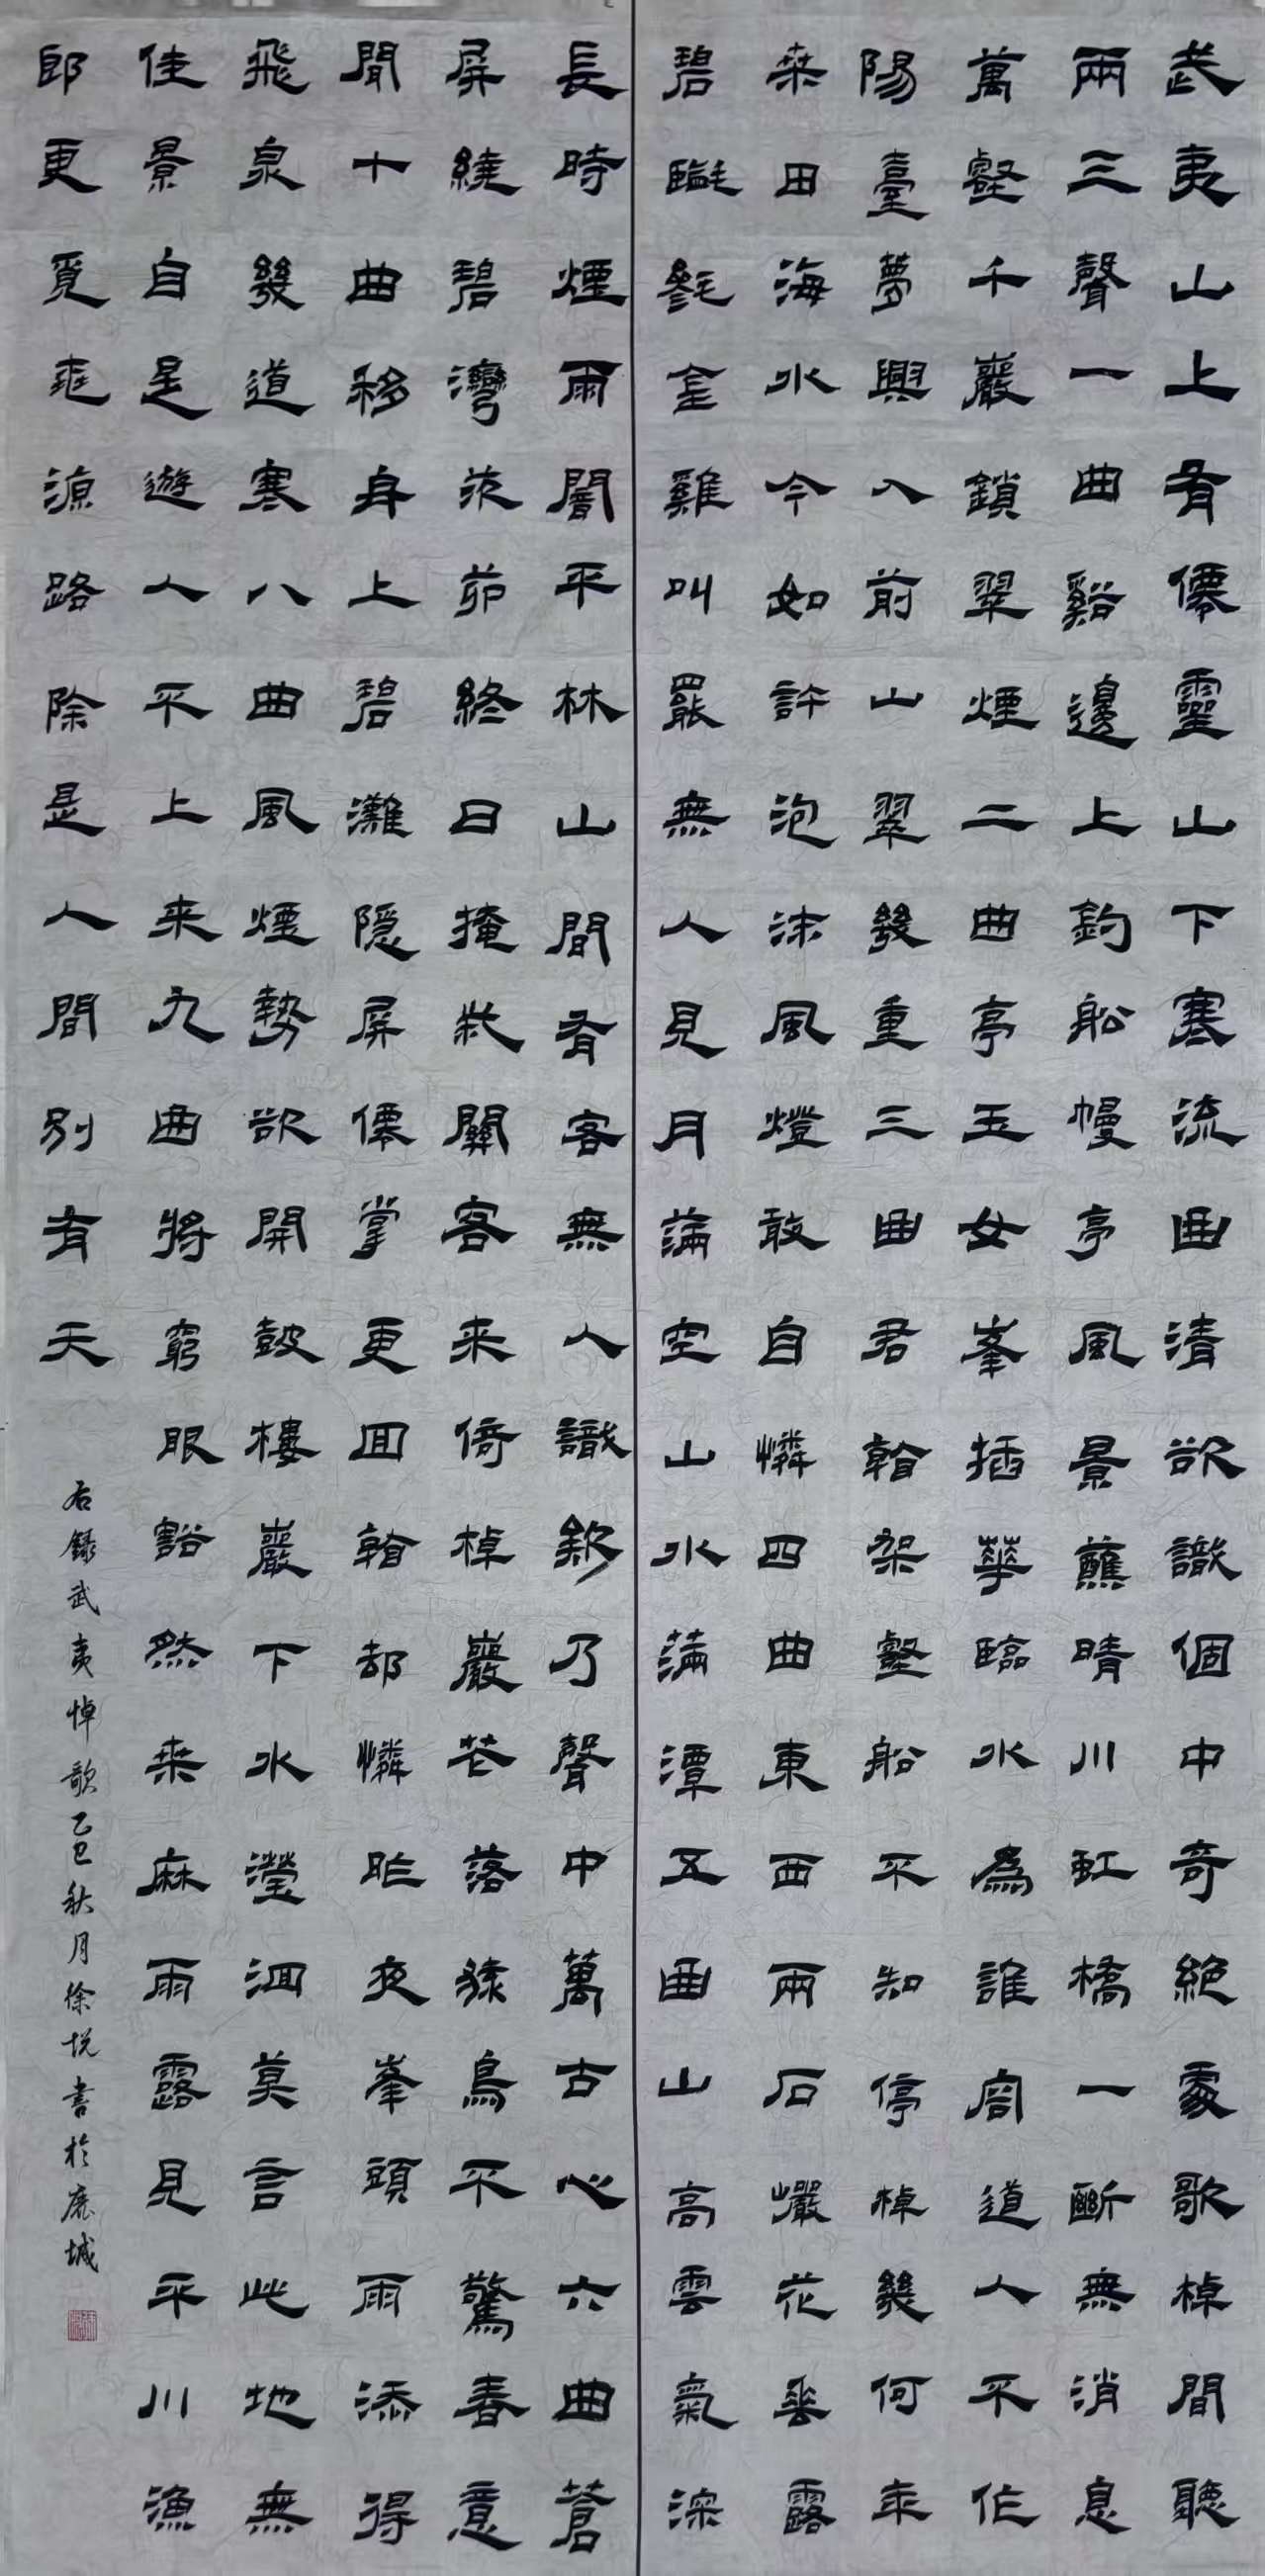 武夷山上有僊靈山下寒流曲清欲識個中奇絕處歌棹間聽
兩三聲一曲谿邊上釣船幔亭風景蘸晴川虹橋一斷無消息
萬壑千巖鎖翠煙二曲亭玉女峯插華臨水為誰容道人不作
陽臺夢興入前山翠幾重三曲君看架壑船不知停棹幾何年
桒田海水今如許泡沫風燈敢自憐四曲東西兩石巖花垂露
碧㲯毿金雞叫罷無人見月滿空山水滿潭五曲山高雲氣深
長時煙雨闇平林山間有客無人識欸乃聲中萬古心六曲蒼
屏繞碧灣茨茆終日掩柴關客来倚棹巖花落猿鳥不驚春意
閒七曲移舟上碧灘隱屏僊掌更回看却憐昨夜峯頭雨添得
飛泉幾道寒八曲風煙勢欲開鼓樓巖下水瀠洄莫言此地無
佳景自是遊人不上来九曲將窮眼豁然桒麻雨露見平川漁
郎更覓桃源路除是人間別有天
右録武夷悼歌乙巳秋月徐悅書於鹿城